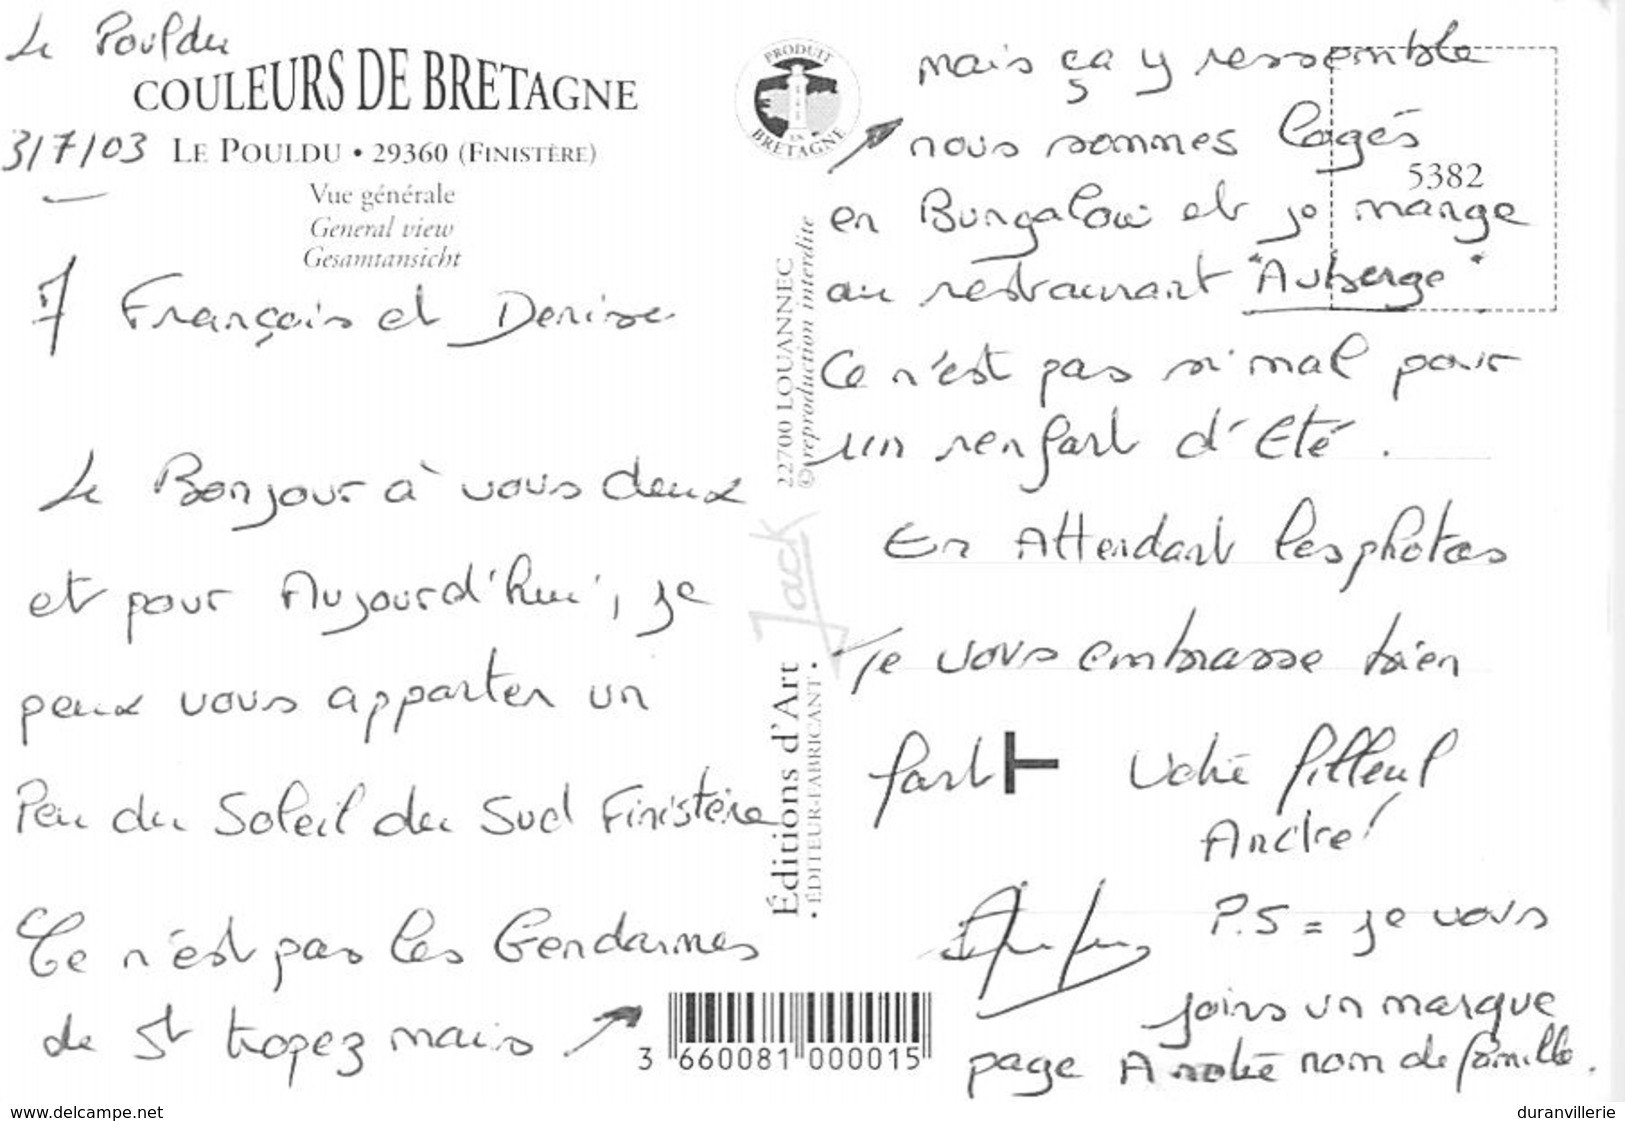 Le Pouldu
COULEURS DE BRETAGNE
3/7/03 LE POULDU • 29360 (FINISTÈRE)
Vue générale
General view
Gesamtansicht
François et Denise
Le Bonjour à vous deux
et pour Aujourd'hui, je
peux vous apporter un
Peu du Soleil du Sud Finistère
Ce n'est pas les Gendarmes
de St tropez mais
3 660081 000015
PRODUIT EN BRETAGNE
22700 LOUANNEC
© reproduction interdite
Jack
Éditions d'Art
• ÉDITEUR-FABRICANT •
mais ça y ressemble
nous sommes logés
5382
en Bungalow et je mange
au restaurant "Auberge"
Ce n'est pas si mal pour
un renfort d'Eté.
En Attendant les photos
Je vous embrasse bien
fort Votre filleul
André
P.S = je vous
joins un marque
page A notre nom de famille.
www.delcampe.net
duranvillerie